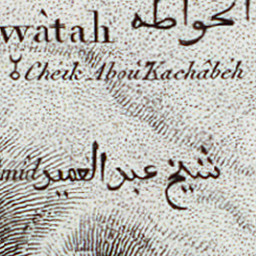 wàtah الحواطه
Cheik Abou Kachâbéh
mid شيخ عبد العميد